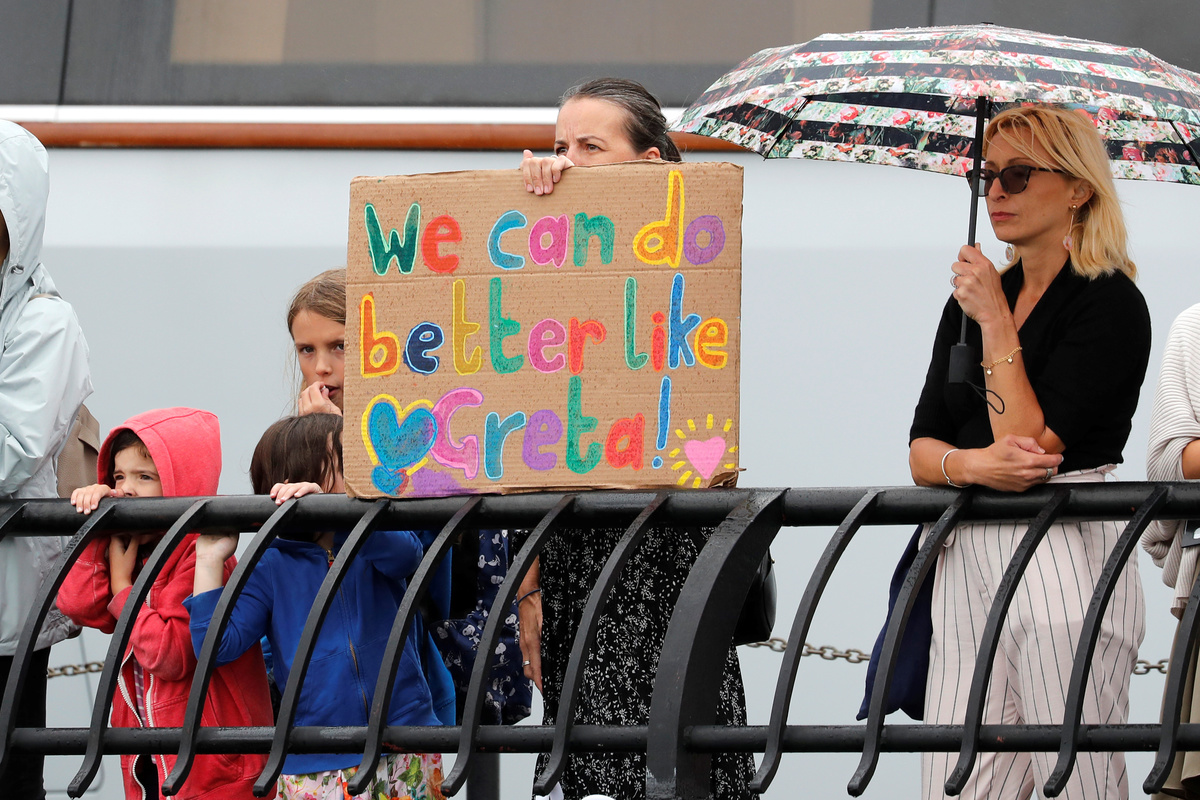 We can do
better like
Greta!